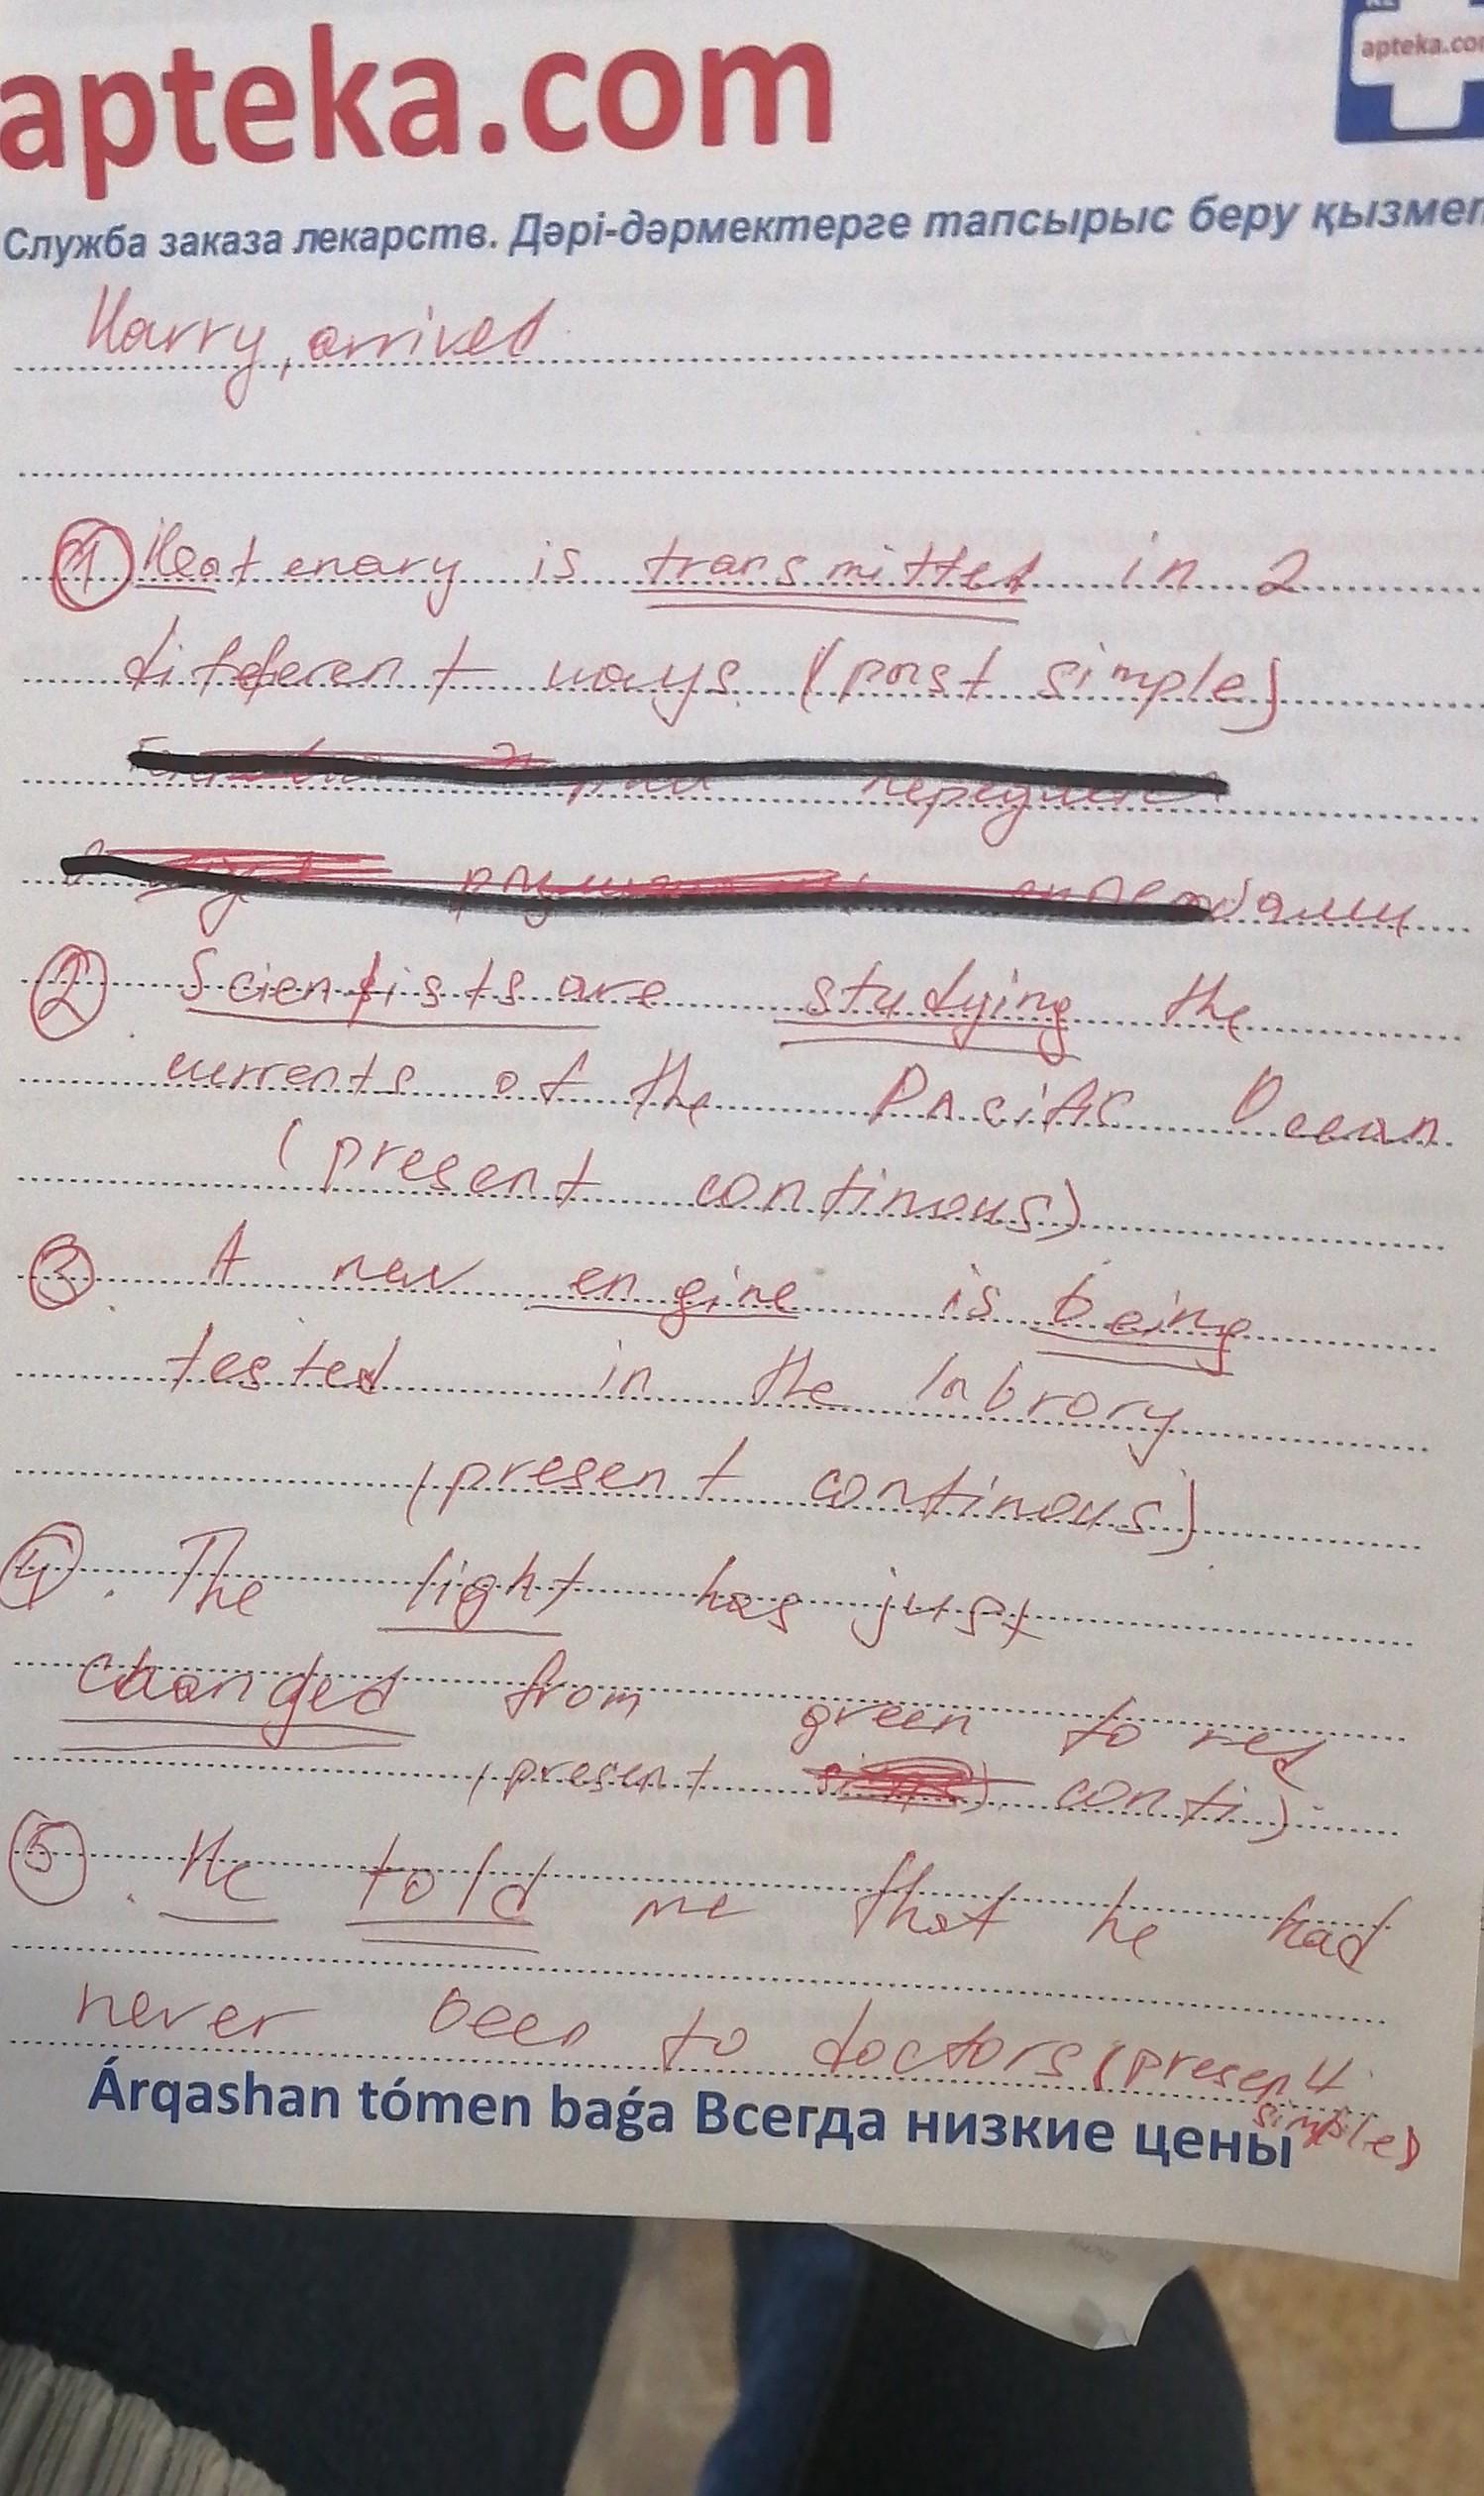 apteka.com
apteka.com
Служба заказа лекарств. Дәрі-дәрмектерге тапсырыс беру қызмет
Harry, arrived
1) Heat enary is transmitted in 2
different ways (past simple)
2 Scientists are studying the
currents of the Pacific Ocean
(present continous)
3 A new engine is being
tested in the labrory
(present continous)
4. The light has just
changed from green to red
(present conti)
5. He told me that he had
never been to doctors (present
simple)
Árqashan tómen baǵa Всегда низкие цены